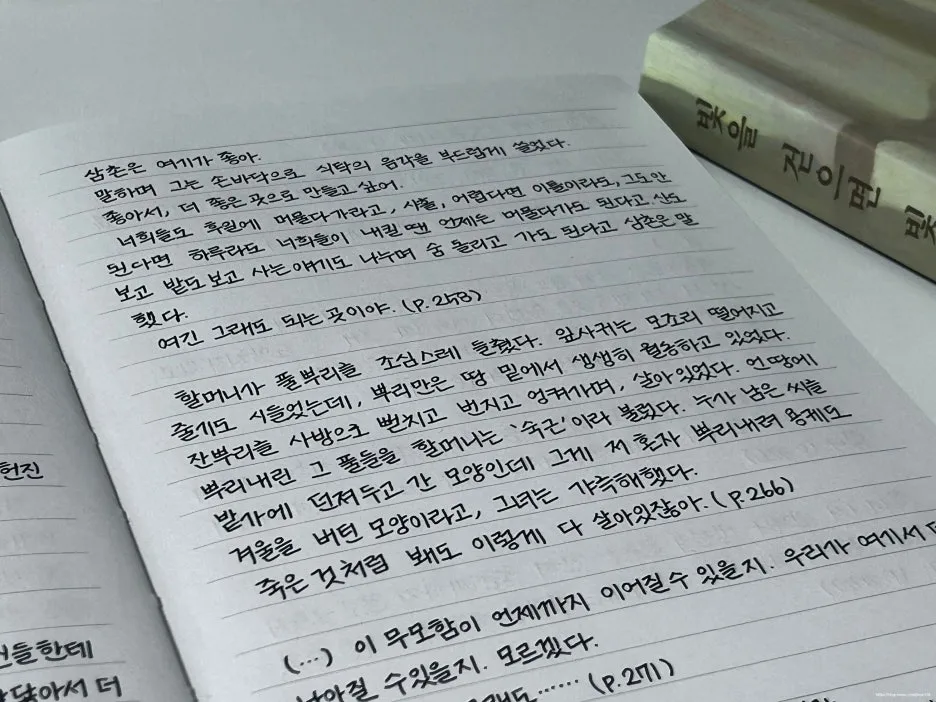 삼촌은 여기가 좋아.
말하며 그는 손바닥으로 식탁의 음각을 부드럽게 쓸었다.
좋아서, 더 좋은 곳으로 만들고 싶어.
너희들도 후원에 머물다가라고, 사흘, 어렵다면 이틀이라도, 그도안
된다면 하루라도 너희들이 내킬 땐 언제든 머물다가도 된다고 산도
보고 밭도 보고 사는 얘기도 나누며 숨 돌리고 가도 된다고 삼촌은 말
했다.
여긴 그래도 되는 곳이야. (p.258)
할머니가 풀뿌리를 조심스레 들췄다. 잎사귀는 모조리 떨어지고
줄기도 시들었는데, 뿌리만은 땅 밑에서 생생히 월동하고 있었다.
잔뿌리를 사방으로 뻗치고 번지고 엉켜가며, 살아있었다. 언 땅에
뿌리내린 그 풀들을 할머니는 '숙근'이라 불렀다. 누가 남은 씨를
밭가에 던져두고 간 모양인데 그게 저 혼자 뿌리내려 용케도
겨울을 버틴 모양이라고, 그녀는 갸륵해했다.
죽은 것처럼 봬도 이렇게 다 살아있잖아. (p.266)
(...) 이 무모함이 언제까지 이어질 수 있을지. 우리가 여기서 더
나아질 수 있을지. 모르겠다.
래도...... (p.271)
헌진
들한테
닿아서 더
빛을 걷으면 빛